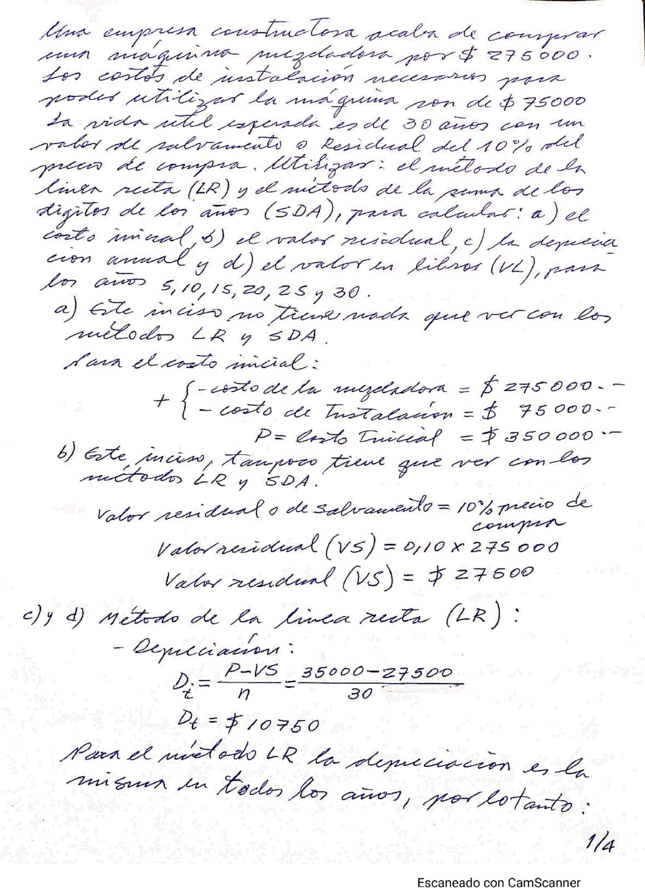 Una empresa constructora acaba de comprar
una máquina mezcladora por $ 275000.
Los costos de instalación necesarios para
poder utilizar la máquina son de $ 75000
La vida útil esperada es de 30 años con un
valor de salvamento o Residual del 10% del
precio de compra. Utilizar: el método de la
linea recta (LR) y el método de la suma de los
digitos de los años (SDA), para calcular: a) el
costo inicial, b) el valor residual, c) la deprecia
ción anual y d) el valor en libros (VL), para
los años 5, 10, 15, 20, 25 y 30.
a) Este inciso no tiene nada que ver con los
métodos LR y SDA.
Para el costo inicial:
+ { - costo de la mezcladora = $ 275000.-
- costo de Instalación = $ 75000.-
P = Costo Inicial = $ 350000.-
b) Este inciso, tampoco tiene que ver con los
métodos LR y SDA.
Valor residual o de salvamento = 10% precio de
compra
Valor residual (VS) = 0,10 x 275000
Valor residual (VS) = $ 27500
c) y d) Método de la linea recta (LR):
- Depreciación:
Dt = P-VS / n = 35000-27500 / 30
Dt = $ 10750
Para el método LR la depreciación es la
misma en todos los años, por lo tanto:
1/4
Escaneado con CamScanner